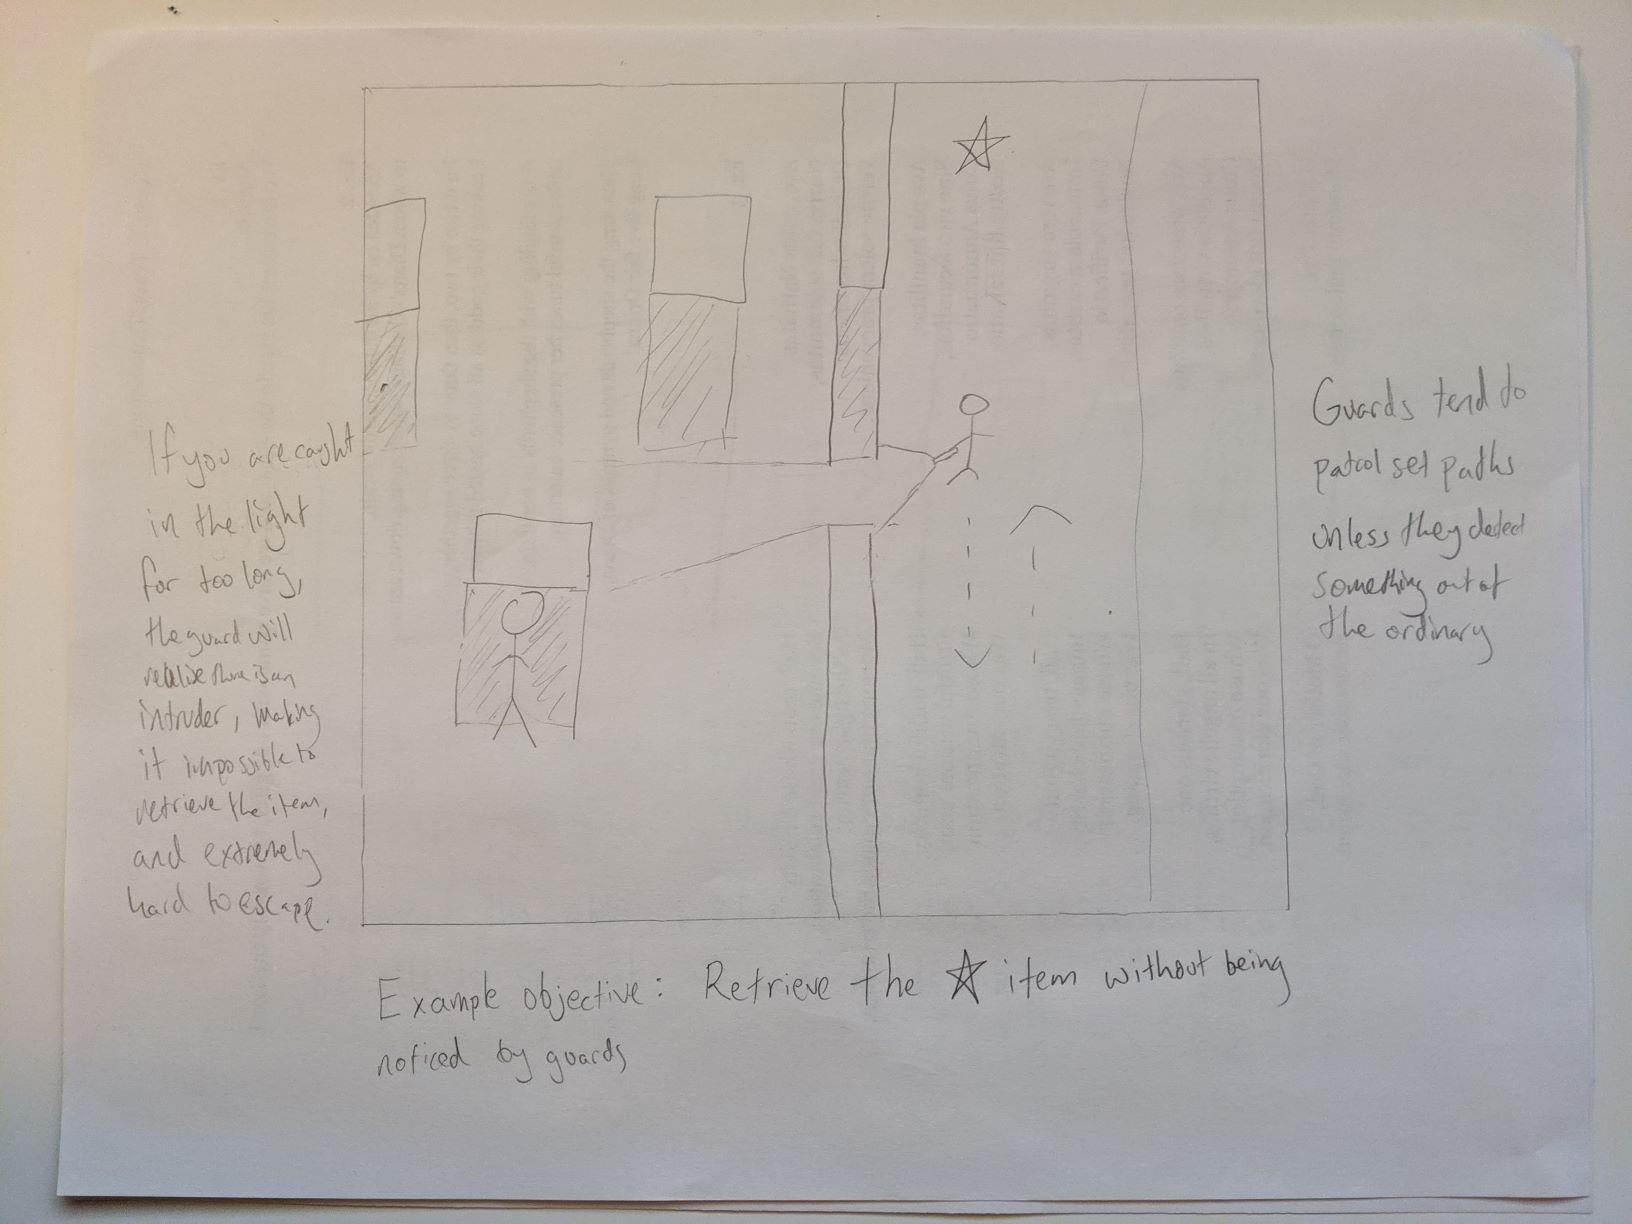 If you are caught
in the light
for too long,
the guard will
realise there is an
intruder, making
it impossible to
retrieve the item,
and extremely
hard to escape.
Guards tend to
patrol set paths
unless they detect
something out of
the ordinary
Example objective: Retrieve the ☆ item without being
noticed by guards